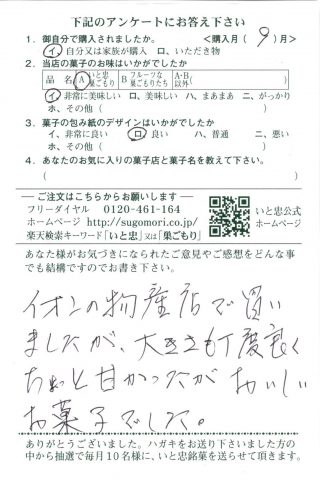 下記のアンケートにお答え下さい
1．御自分で購入されましたか。 <購入月( 9 )月>
イ、自分又は家族が購入 ロ、いただき物
2．当店の菓子のお味はいかがでしたか
品 名 A いと忠巣ごもり B フルーツな巣ごもりたち A・B以外
イ、非常に美味しい ロ、美味しい ハ、まあまあ ニ、がっかり
ホ、その他（ ）
3．菓子の包み紙のデザインはいかがでしたか
イ、非常に良い ロ、良い ハ、普通 ニ、悪い
ホ、その他（ ）
4．あなたのお気に入りの菓子店と菓子名を教えて下さい。
（ ）
ご注文はこちらからお願いします
フリーダイヤル 0120-461-164
ホームページ http://sugomori.co.jp/
楽天検索キーワード「いと忠」又は「巣ごもり」
いと忠公式
ホームページ
あなた様がお気づきになられたご意見やご感想をどんな事
でも結構ですのでお書き下さい。
イオンの物産店で買い
ましたが、大きさも丁度良く
ちょっと甘かったが おいしい
お菓子でした。
ありがとうございました。ハガキをお送り下さいました方の
中から抽選で毎月10名様に、いと忠銘菓を送らせて頂きます。